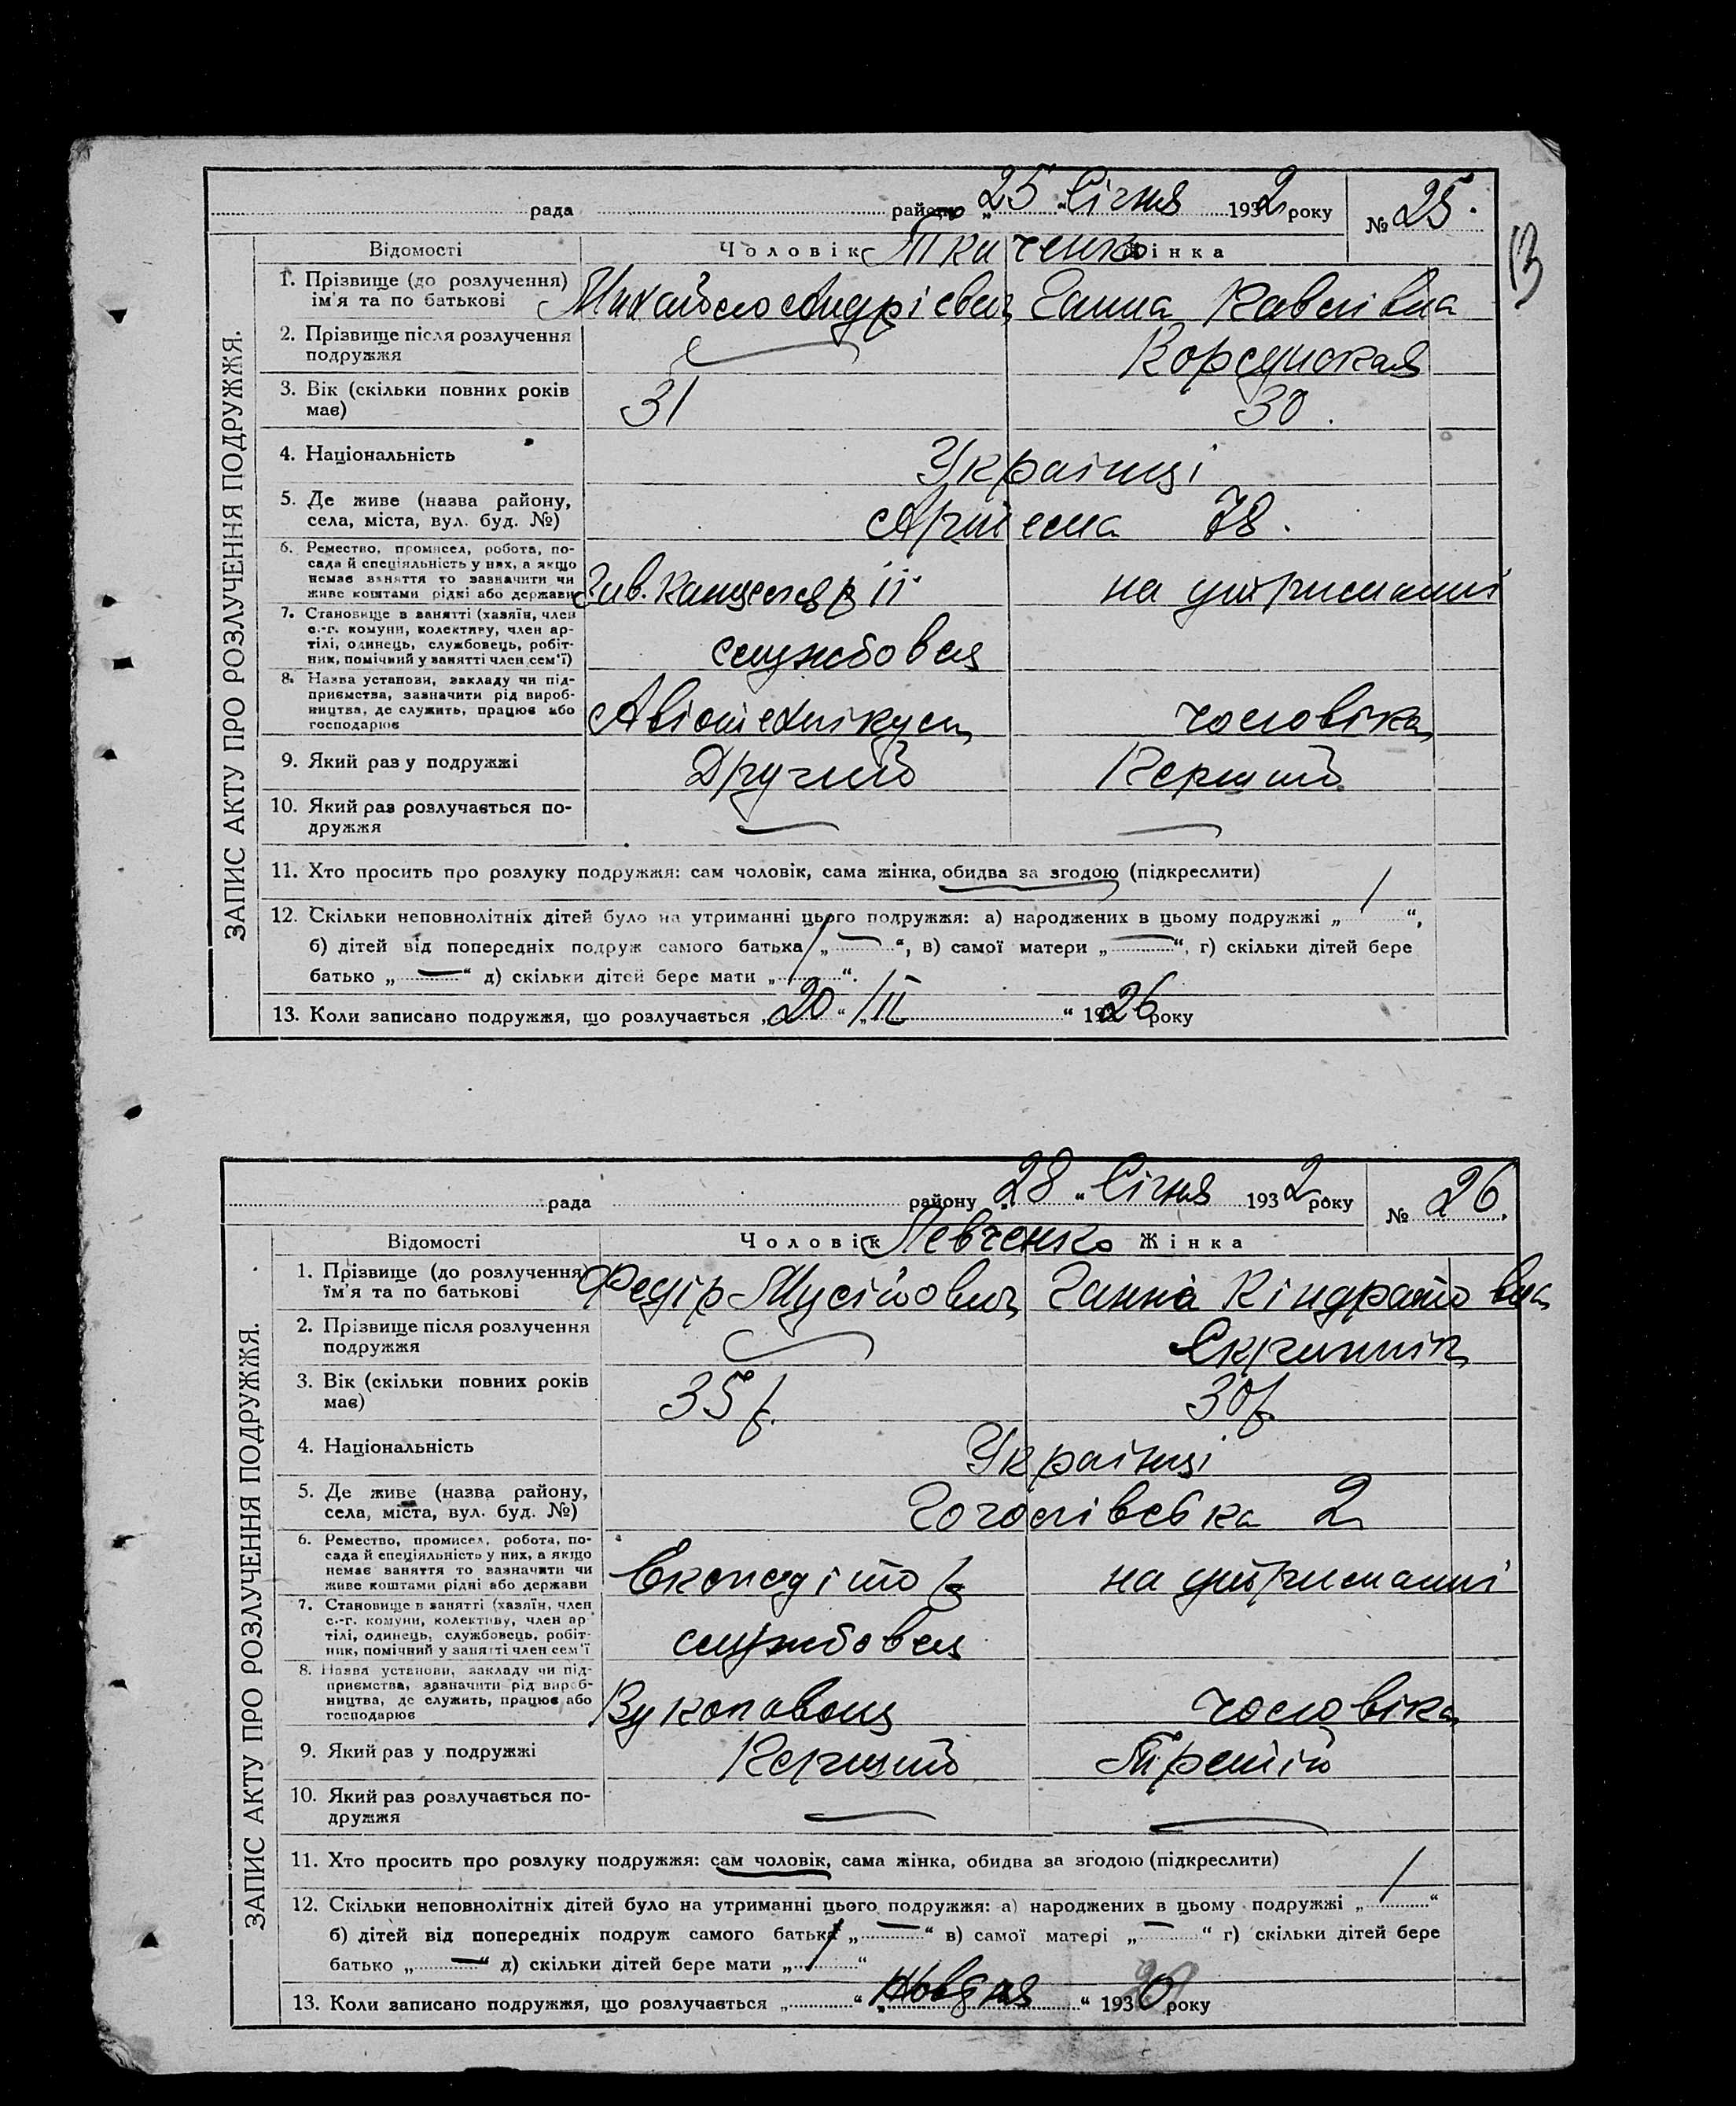 рада району „25“ Січня 1932 року № 25.
13
ЗАПИС АКТУ ПРО РОЗЛУЧЕННЯ ПОДРУЖЖЯ.
Відомості Чоловік Ткаченко Жінка
1. Прізвище (до розлучення) ім'я та по батькові Михайло Андрієвич Ганна Павлівна
2. Прізвище після розлучення подружжя Корсунская
3. Вік (скільки повних років має) 31 30.
4. Національність Українці
5. Де живе (назва району, села, міста, вул. буд. №) Артема 78.
6. Ремество, промисел, робота, посада й спеціяльність у них, а якщо немає заняття то зазначити чи живе коштами рідні або держави Зав. Канцелярії на утриманні
7. Становище в занятті (хазяїн, член с.-г. комуни, колективу, член артілі, одинець, службовець, робітник, помічний у занятті член сем'ї) службовец
8. Назва установи, закладу чи підприємства, зазначити рід виробництва, де служить, працює або господарює Авіотехнікум чоловіка
9. Який раз у подружжі Другий Перший
10. Який раз розлучається подружжя
11. Хто просить про розлуку подружжя: сам чоловік, сама жінка, обидва за згодою (підкреслити)
12. Скільки неповнолітніх дітей було на утриманні цього подружжя: а) народжених в цьому подружжі „ 1 “,
б) дітей від попередніх подруж самого батька „ — “, в) самої матери „ — “, г) скільки дітей бере
батько „ — “ д) скільки дітей бере мати „ 1 “.
13. Коли записано подружжя, що розлучається „20“ „/II “ 1926 року
рада району „28“ Січня 1932 року № 26.
ЗАПИС АКТУ ПРО РОЗЛУЧЕННЯ ПОДРУЖЖЯ.
Відомості Чоловік Левченко Жінка
1. Прізвище (до розлучення) їм'я та по батькові Федір Мусійович Ганна Кіндратовна
2. Прізвище після розлучення подружжя Скрипнік
3. Вік (скільки повних років має) 35 р. 30 р.
4. Національність Українці
5. Де живе (назва району, села, міста, вул. буд. №) Гоголівська 2
6. Ремество, промисел, робота, посада й спеціяльність у них, а якщо немає заняття то зазначити чи живе коштами рідні або держави Експедітор на утриманні
7. Становище в занятті (хазяїн, член с.-г. комуни, колективу, член артілі, одинець, службовець, робітник, помічний у занятті член сем'ї службовец
8. Назва установи, закладу чи підприємства, зазначити рід виробництва, де служить, працює або господарює чоловіка
9. Який раз у подружжі Перший Третій
10. Який раз розлучається подружжя
11. Хто просить про розлуку подружжя: сам чоловік, сама жінка, обидва за згодою (підкреслити)
12. Скільки неповнолітніх дітей було на утриманні цього подружжя: а) народжених в цьому подружжі „ 1 “
б) дітей від попередніх подруж самого батька „ — “ в) самої матері „ — “ г) скільки дітей бере
батько „ — “ д) скільки дітей бере мати „ 1 “
13. Коли записано подружжя, що розлучається „ “ „Жовтня “ 1930 року